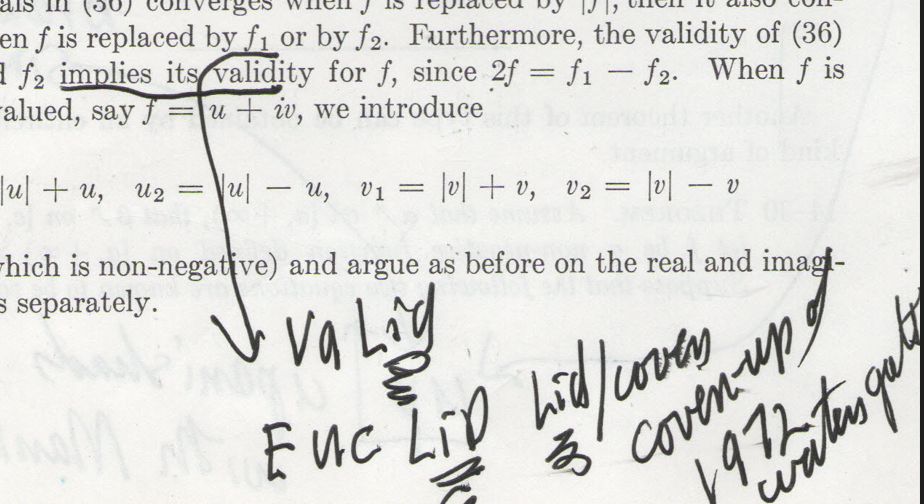 als in (36) converges when f is replaced by |f|, then it also con-
en f is replaced by f₁ or by f₂. Furthermore, the validity of (36)
d f₂ implies its validity for f, since 2f = f₁ − f₂. When f is
valued, say f = u + iv, we introduce
|u| + u, u₂ = |u| − u, v₁ = |v| + v, v₂ = |v| − v
which is non-negative) and argue as before on the real and imagi-
s separately.
VaLid
EUCLiD Lid/cover
cover-up of
1972
watergate